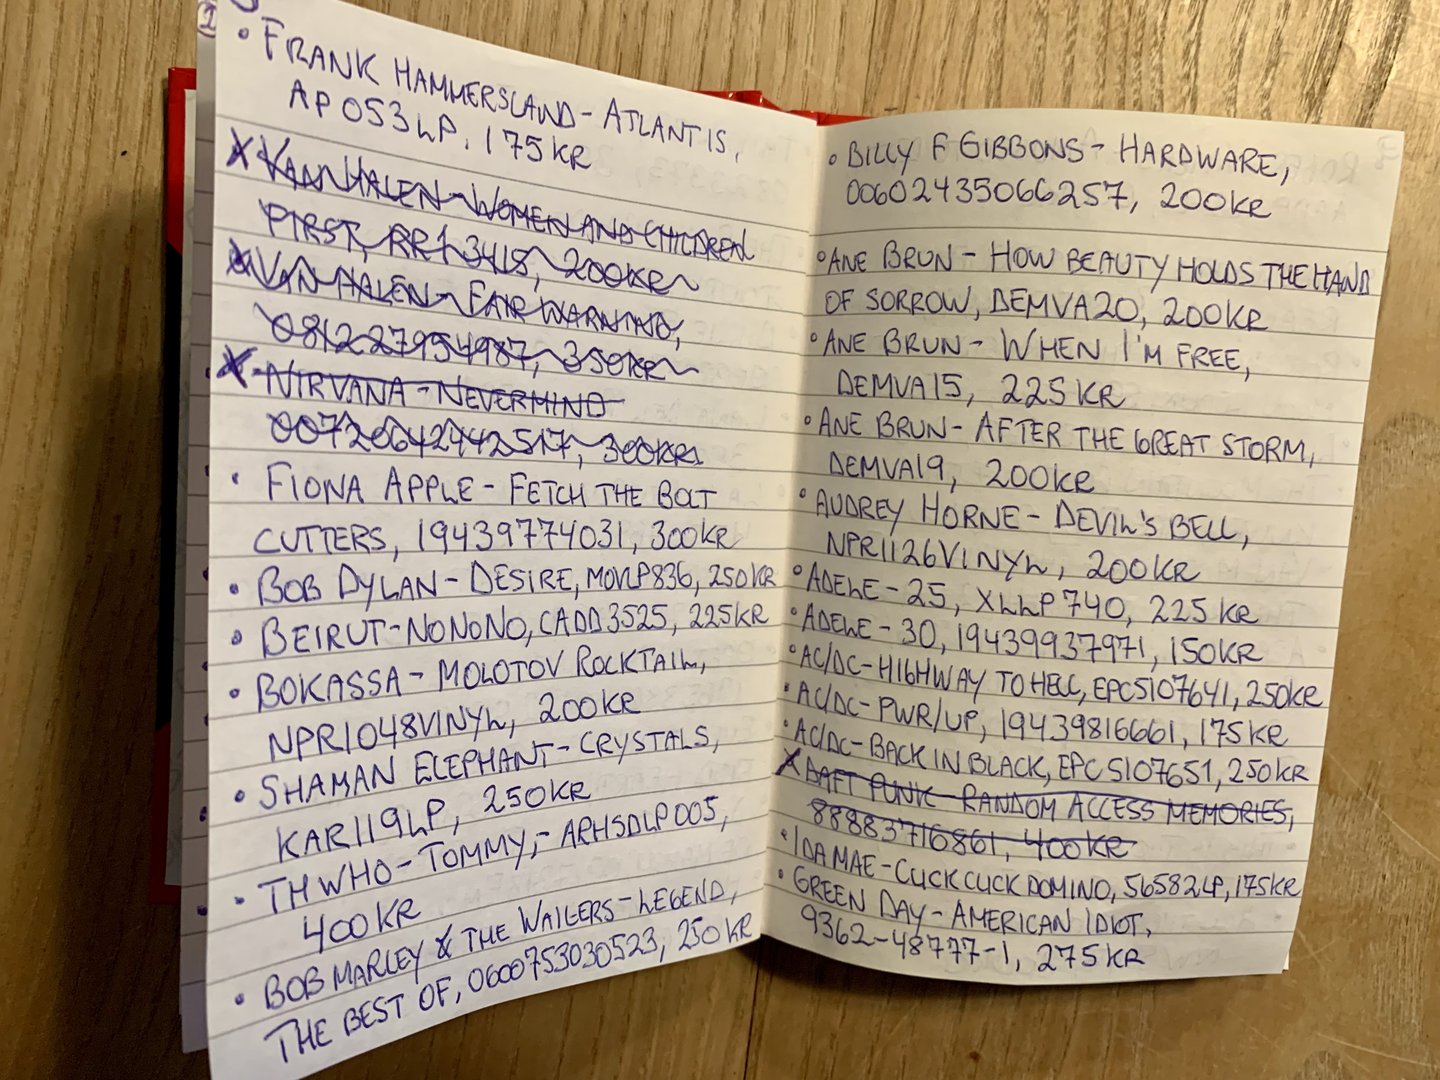 • FRANK HAMMERSLAND - ATLANTIS,
AP053LP, 175KR
X VAN HALEN - WOMEN AND CHILDREN
FIRST, RR1 3415, 200KR
X VAN HALEN - FAIR WARNING,
081227954987, 350KR
X • NIRVANA - NEVERMIND
00720642442517, 300KR
• FIONA APPLE - FETCH THE BOLT
CUTTERS, 19439774031, 300KR
• BOB DYLAN - DESIRE, MOVLP836, 250KR
• BEIRUT - NO NO NO, CADD3525, 225KR
• BOKASSA - MOLOTOV ROCKTAIL,
NPR1048VINYL, 200KR
• SHAMAN ELEPHANT - CRYSTALS,
KAR119LP, 250KR
• TH WHO - TOMMY, - ARHSDLP005,
400KR
• BOB MARLEY & THE WAILERS - LEGEND,
THE BEST OF, 0600753030523, 250KR
• BILLY F GIBBONS - HARDWARE,
00602435066257, 200KR
• ANE BRUN - HOW BEAUTY HOLDS THE HAND
OF SORROW, DEMVA20, 200KR
• ANE BRUN - WHEN I'M FREE,
DEMVA15, 225KR
• ANE BRUN - AFTER THE GREAT STORM,
DEMVA19, 200KR
• AUDREY HORNE - DEVIL'S BELL,
NPR1126VINYL, 200KR
• ADELE - 25, XLLP740, 225KR
• ADELE - 30, 19439937971, 150KR
• AC/DC - HIGHWAY TO HELL, EPC5107641, 250KR
• AC/DC - PWR/UP, 19439816661, 175KR
• AC/DC - BACK IN BLACK, EPC5107651, 250KR
X DAFT PUNK - RANDOM ACCESS MEMORIES,
88883716861, 400KR
• IDA MAE - CLICK CLICK DOMINO, 56582LP, 175KR
• GREEN DAY - AMERICAN IDIOT,
9362-48777-1, 275KR